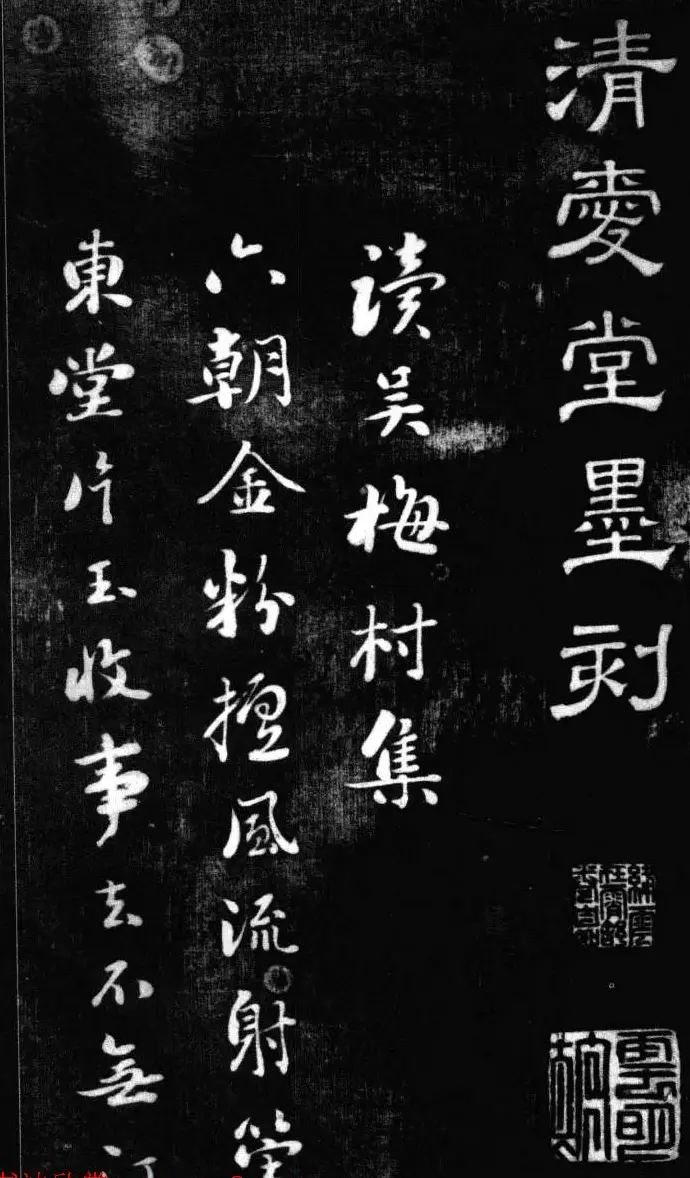 清愛堂墨刻
讀吳梅村集
六朝金粉擅風流射策
東堂片玉收事去不無